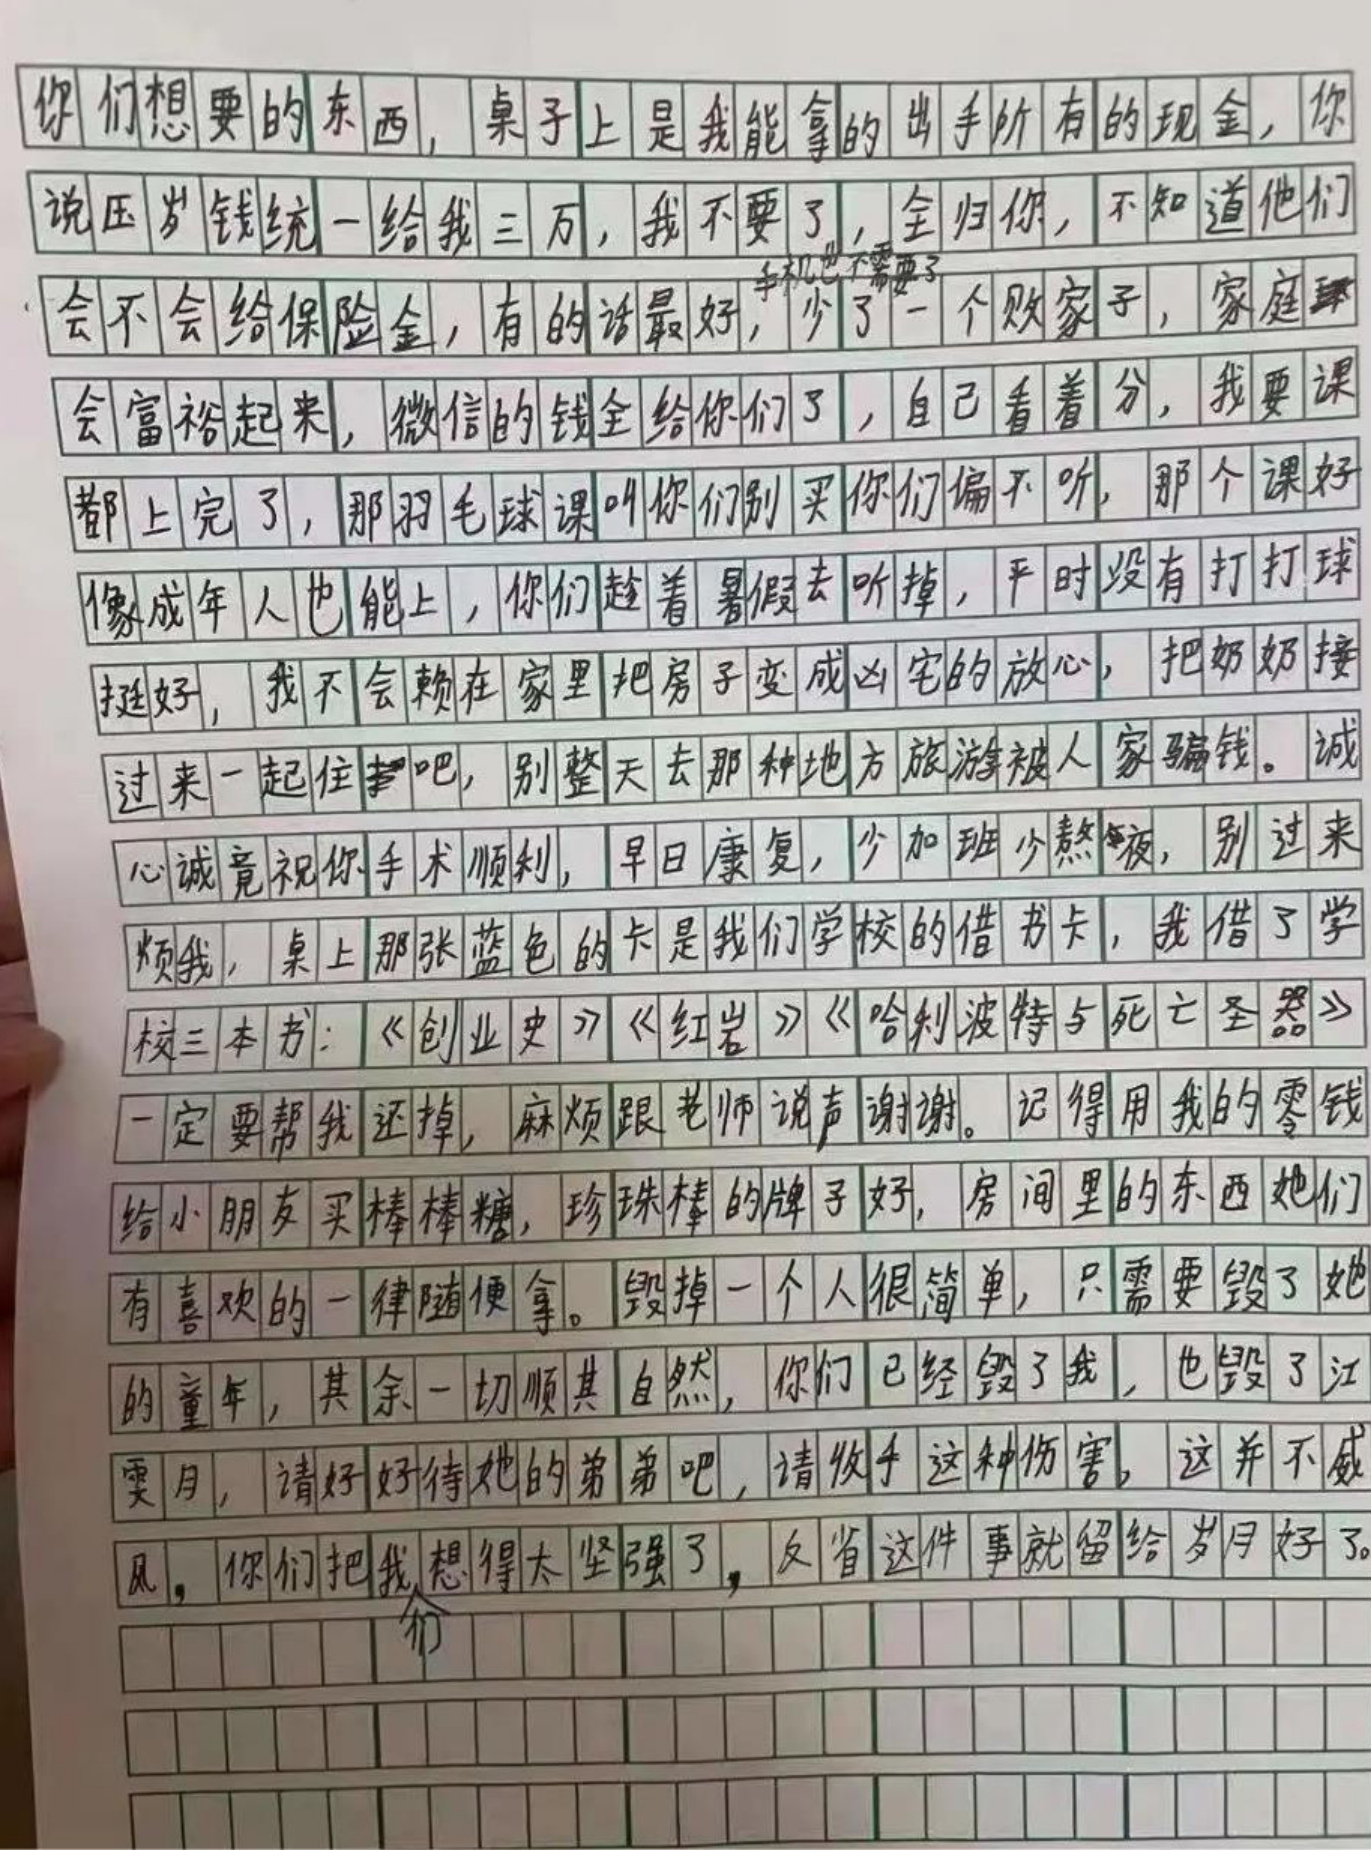 你们想要的东西，桌子上是我能拿的出手所有的现金，你
说压岁钱统一给我三万，我不要了，全归你，不知道他们
手机也不需要了
会不会给保险金，有的话最好，少了一个败家子，家庭
会富裕起来，微信的钱全给你们了，自己看着分，我要课
都上完了，那羽毛球课叫你们别买你们偏不听，那个课好
像成年人也能上，你们趁着暑假去听掉，平时没有打打球
挺好，我不会赖在家里把房子变成凶宅的放心，把奶奶接
过来一起住吧，别整天去那种地方旅游拿被人家骗钱。诚
心诚竟祝你手术顺利，早日康复，少加班少熬夜，别过来
烦我，桌上那张蓝色的卡是我们学校的借书卡，我借了学
校三本书：《创业史》《红岩》《哈利波特与死亡圣器》
一定要帮我还掉，麻烦跟老师说声谢谢。记得用我的零钱
给小朋友买棒棒糖，珍珠棒的牌子好，房间里的东西她们
有喜欢的一律随便拿。毁掉一个人很简单，只需要毁了她
的童年，其余一切顺其自然，你们已经毁了我，也毁了江
雯月，请好好待她的弟弟吧，请收手这种伤害，这并不威
风，你们把我想得太坚强了，反省这件事就留给岁月好了。
们